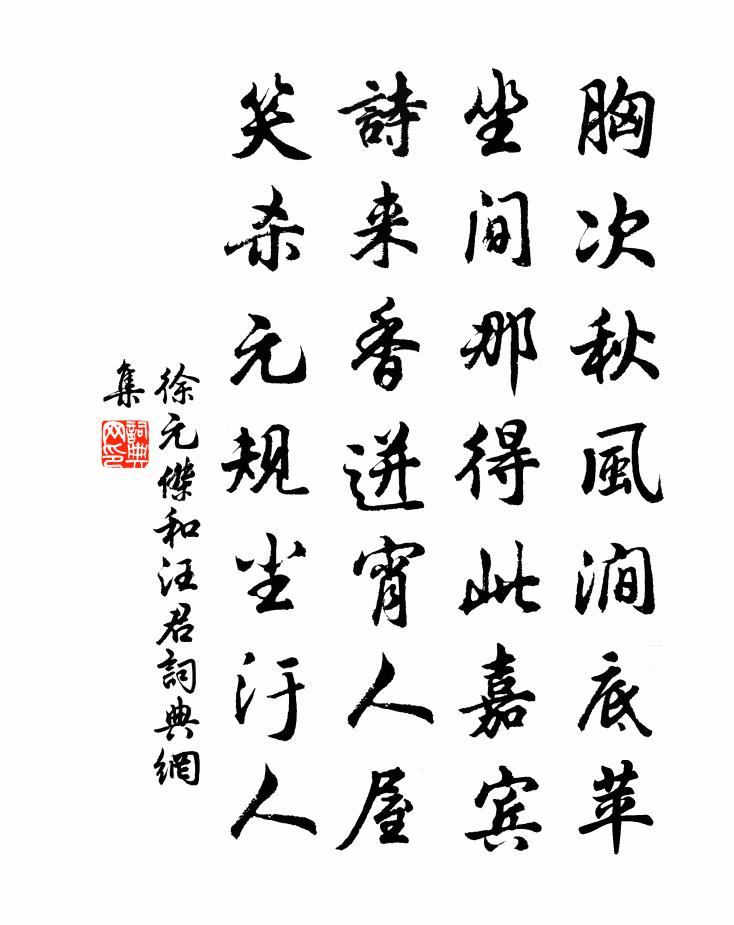 胸次秋風澗底苹
坐间那得此嘉宾
詩来香迸宵人屋
笑杀元规尘汙人
徐元傑和汪君詞典網
集
詞典网印